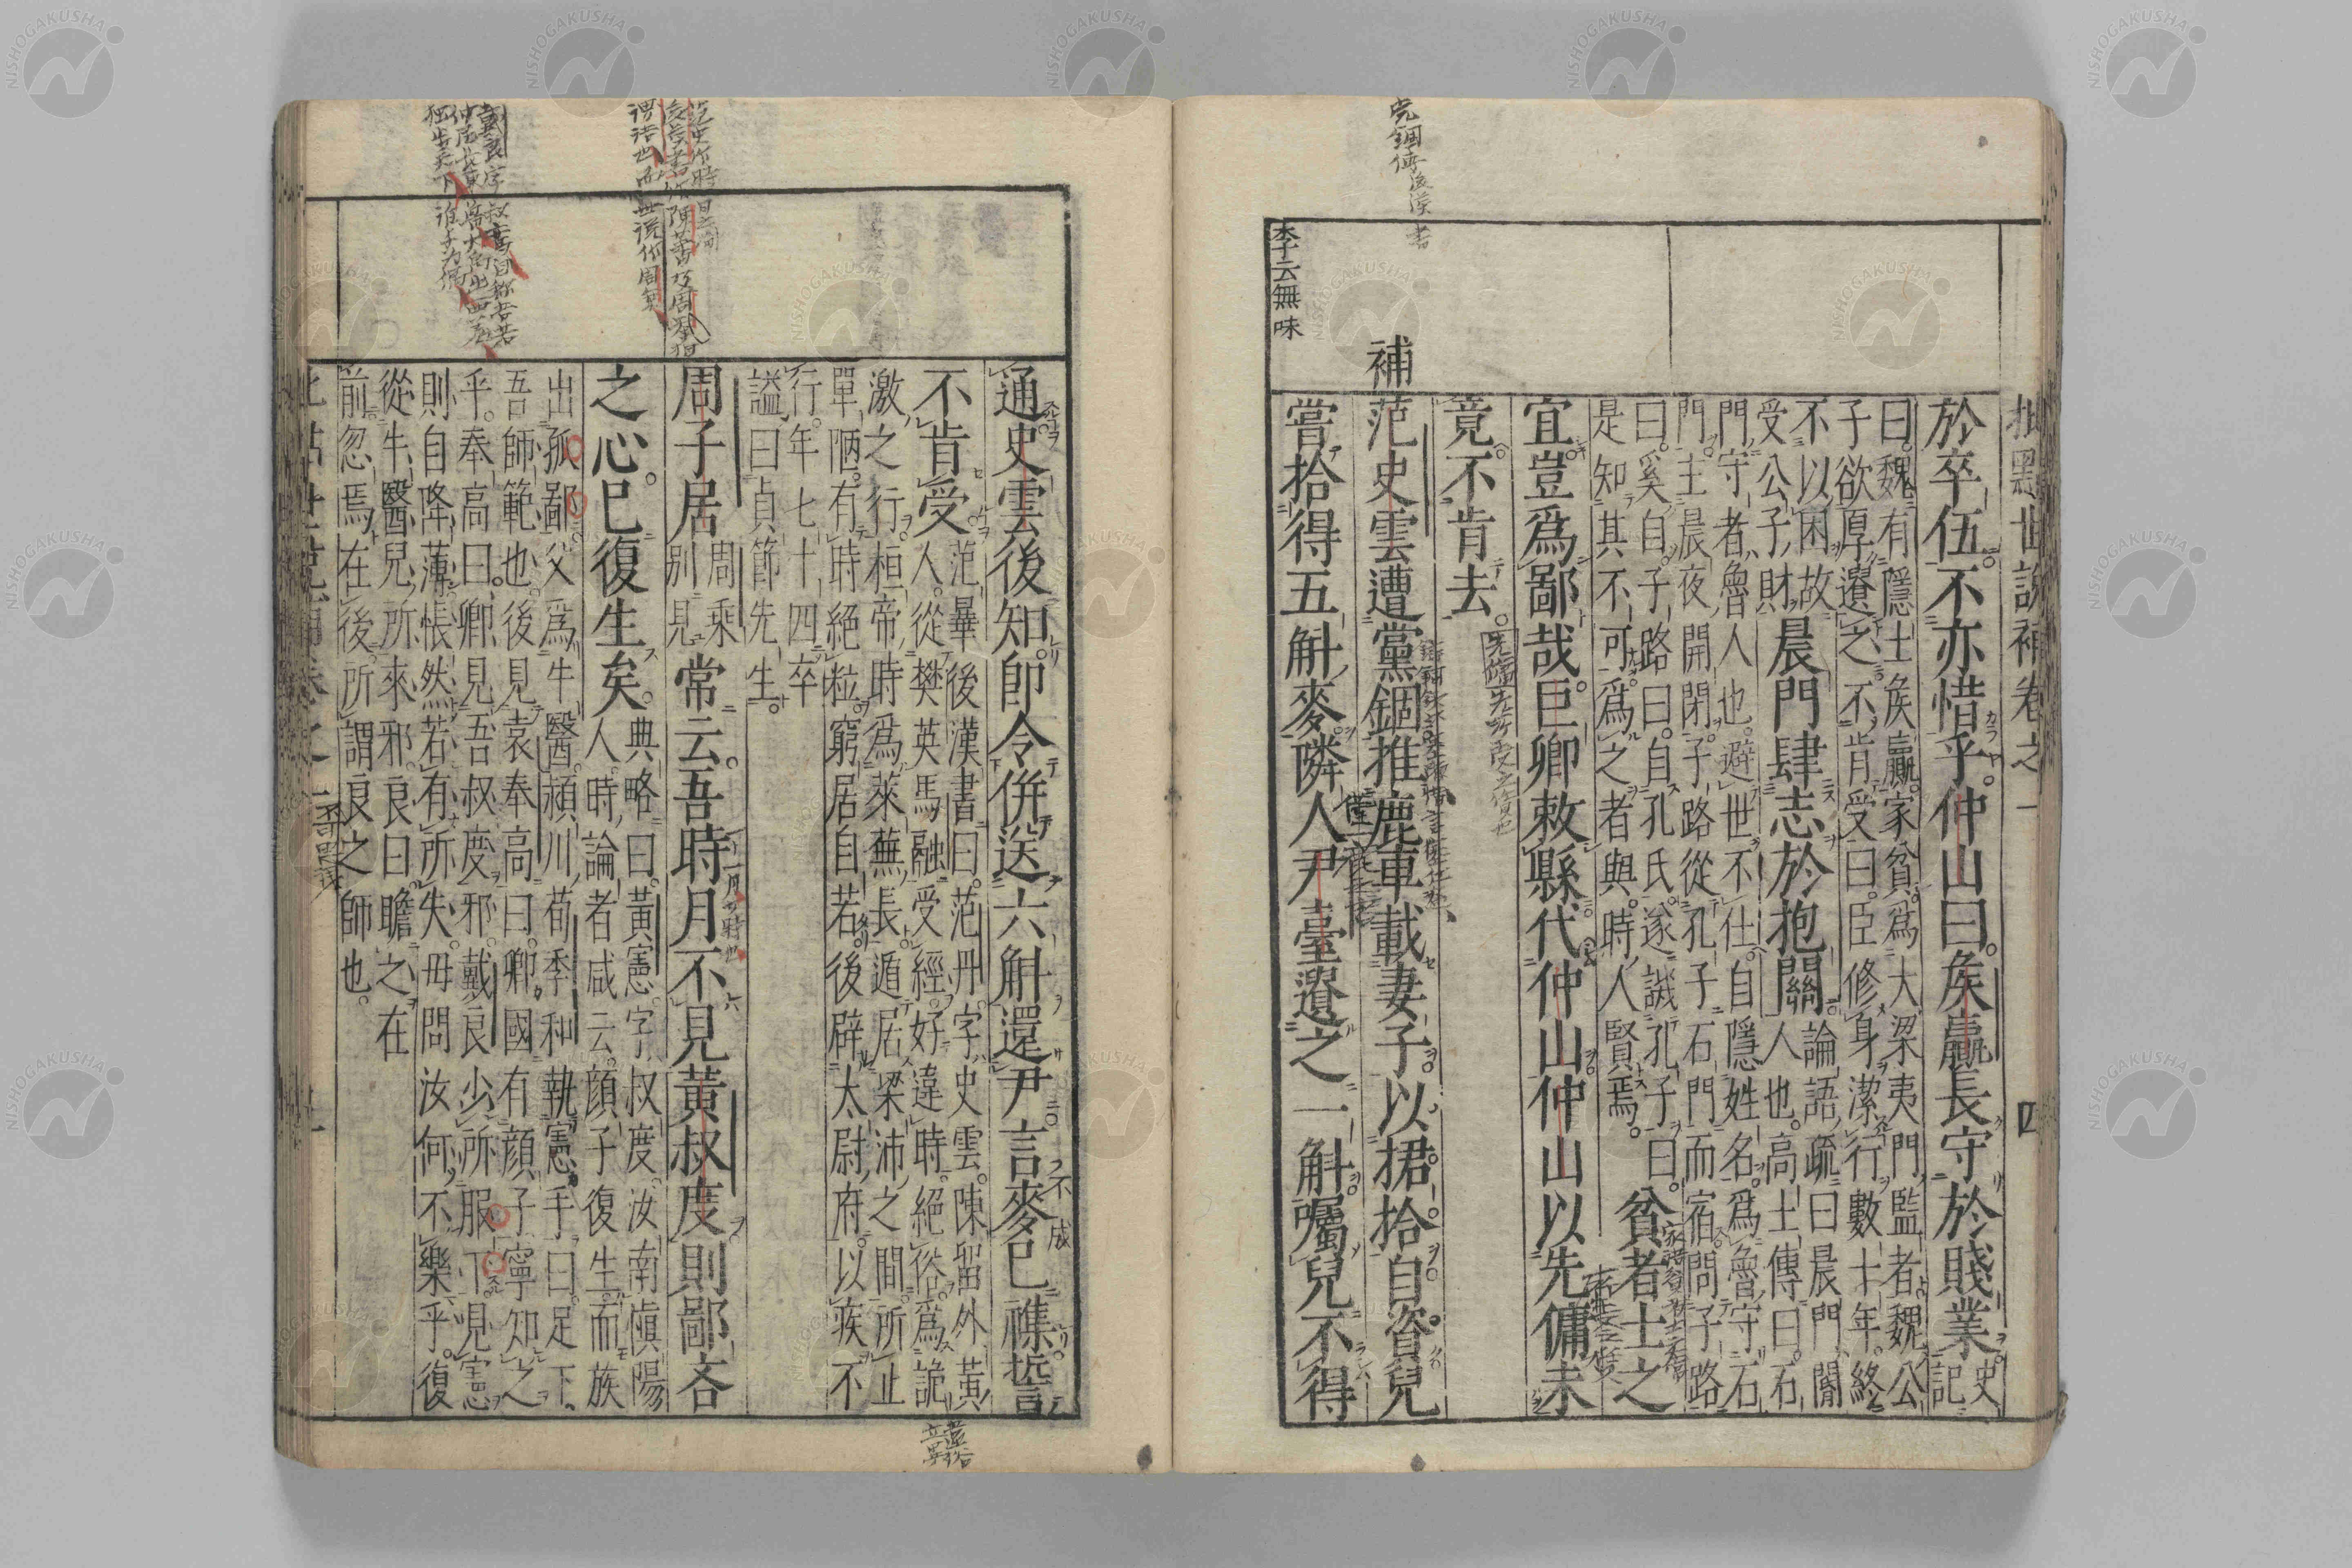 批點世說補卷之一 四
於卒伍。不亦惜乎。仲山曰。矦嬴長守於賤業。史
記
曰。魏有隱士矦嬴。家貧。爲大梁夷門監者。魏公
子欲厚遺之。不肯受。曰。臣修身潔行數十年。終
不以困故
受公子財
晨門肆志於抱關。
論語疏曰。晨門閽
人也。高士傳曰。石
門守者。魯人也。避世不仕。自隱姓名。爲魯守石
門。主晨夜開閉。子路從孔子石門而宿。問子路
曰。奚自。子路曰。自孔氏。遂譏孔子曰。
是知其不可爲之者與。時人賢焉。
貧者士之
宜。豈爲鄙哉。巨卿敕縣代。仲山仲山以先傭未
竟。不肯去。
党錮傳後漢書
補
范史雲遭黨錮。推鹿車載妻子。以捃拾自資。兒
嘗拾得五斛麥。隣人尹臺遺之一斛。囑兒不得
李云無味
通史雲後知。即令併送六斛還尹。言麥已襍。誓
不肯受
范曅後漢書曰。范丹字史雲。陳留外黃
人。從樊英馬融受經。好違時絕俗。爲詭
激之行。桓帝時爲萊蕪長。遁居梁沛之間。所止
單陋。有時絕粒。窮居自若。後辟太尉府。以疾不
行。年七十四卒
謚曰貞節先生。
周子居
周乘
別見
常云。吾時月不見黃叔度。則鄙吝
之心。已復生矣。
典略曰。黃憲字叔度。汝南愼陽
人。時論者咸云。顏子復生。而族
出孤鄙。父爲牛醫。潁川荀季和執憲手曰。足下
吾師範也。後見袁奉高曰。卿國有顏子。寧知之
乎。奉高曰。卿見吾叔度邪。戴良少所服下。見憲
則自降薄。悵然若有所失。母問汝何不樂乎。復
從牛醫兒所來邪。良曰。瞻之在
前。忽焉在後。所謂良之師也。